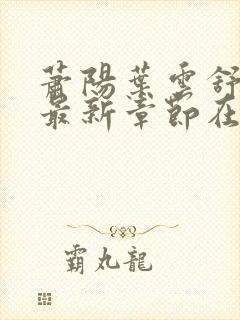 蕭陽葉雲舒
最新章節在
霸丸龍